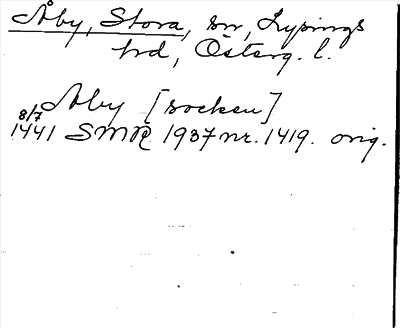 Åby, Stora, sn, Lysings
hd, Österg. l.
Åby [socken]
8/7
1441 SMR 1937 nr. 1419. orig.